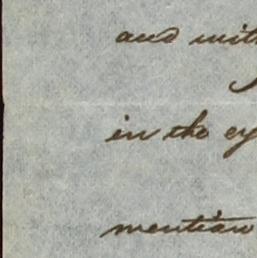 and with
in the ey
mention